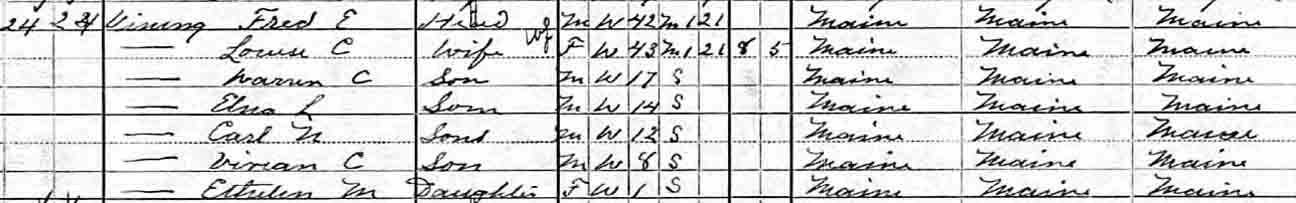 24 24 Vining Fred E Head M W 42 M1 21 Maine Maine Maine
— Louise C Wife F W 43 M1 21 8 5 Maine Maine Maine
— Warren C Son M W 17 S Maine Maine Maine
— L Son M W 14 S Maine Maine Maine
— Carl N Son M W 12 S Maine Maine Maine
— Vivian C Son M W 8 S Maine Maine Maine
— Ethelen M Daughter F W 1 S Maine Maine Maine